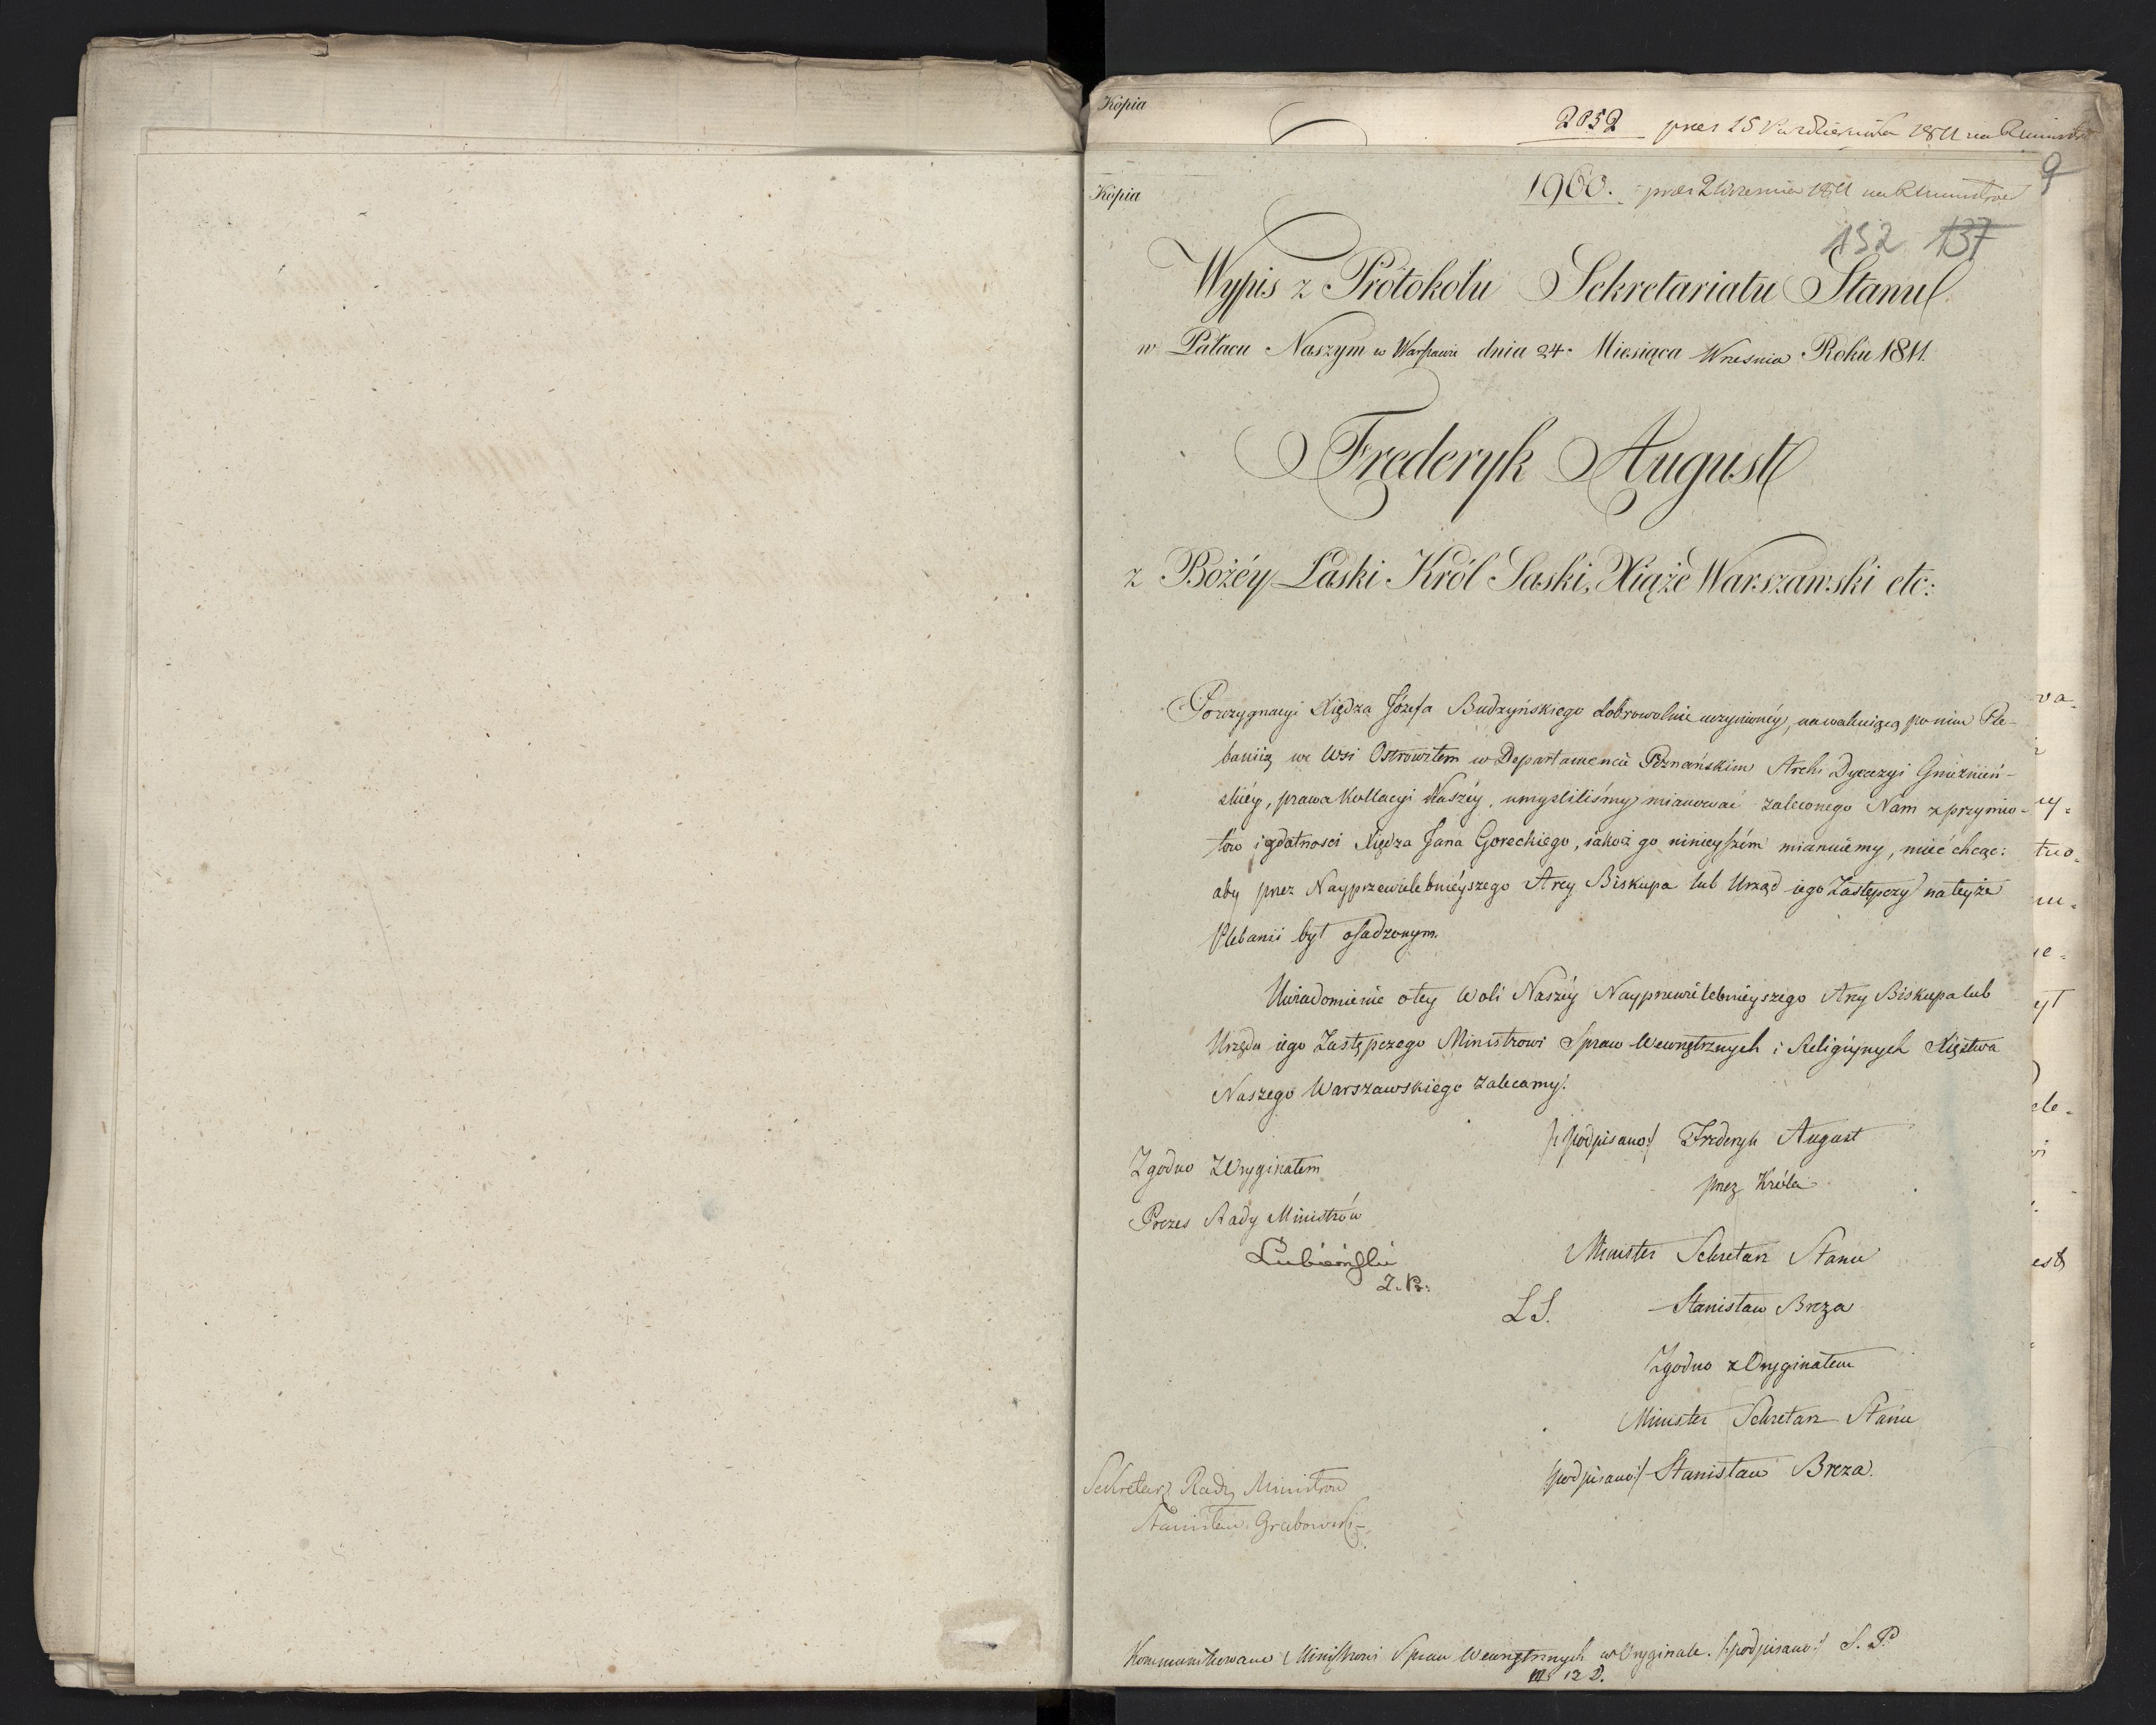 Kópia
2052 prez 15 Pazdziernika 1811 na R Ministrów
9
Kópia
1960. prez 2 Wrzesnia 1811 na R Ministrów
152 137
Wypis z Protokołu Sekretariatu Stanu
w Pałacu Naszym w Warszawie dnia 24. Miesiąca Wrzesnia Roku 1811.
Frederyk August
z Bożéy Łaski Król Saski, Xiąże Warszawski etc:
Po rezygnacyi Xiędza Józefa Budzyńskiego dobrowolnie uczynionéy, na wakuiącą po nim Ple-
banią we Wsi Ostrowitem w Departamencie Poznańskim Archi Dyecezyi Gnieznień-
skiéy, prawa Kollacyi Naszéy, umyśliliśmy mianować zaleconego Nam z przymio-
tów i zdatnosci Xiędza Jana Goreckiego, iakoż go ninieyszém mianuiemy, mieć chcąc:
aby przez Nayprzewielebnieyszego Arcy Biskupa lub Urząd iego Zastępczy na teyże
Plebanii był osadzonym.
Uwiadomienie o tey Woli Naszéy Nayprzewielebnieyszego Arcy Biskupa lub
Urzędu iego Zastępczego Ministrowi Spraw Wewnętrznych i Religiynych Xięstwa
Naszego Warszawskiego zalecamy.
/:podpisano:/ Frederyk August
przez Króla
Zgodno z Oryginałem
Prezes Rady Ministrów
Lubieński
Z. Pr:
Minister Sekretarz Stanu
L S. Stanisław Breza
Zgodno z Oryginałem
Minister Sekretarz Stanu
/:podpisano:/ Stanisław Breza.
Sekretarz Rady Ministrow
Stanisław Grabowski
Kommunikowano Ministrowi Spraw Wewnętrznych w Oryginale. /:podpisano:/ S. P.
12 D.